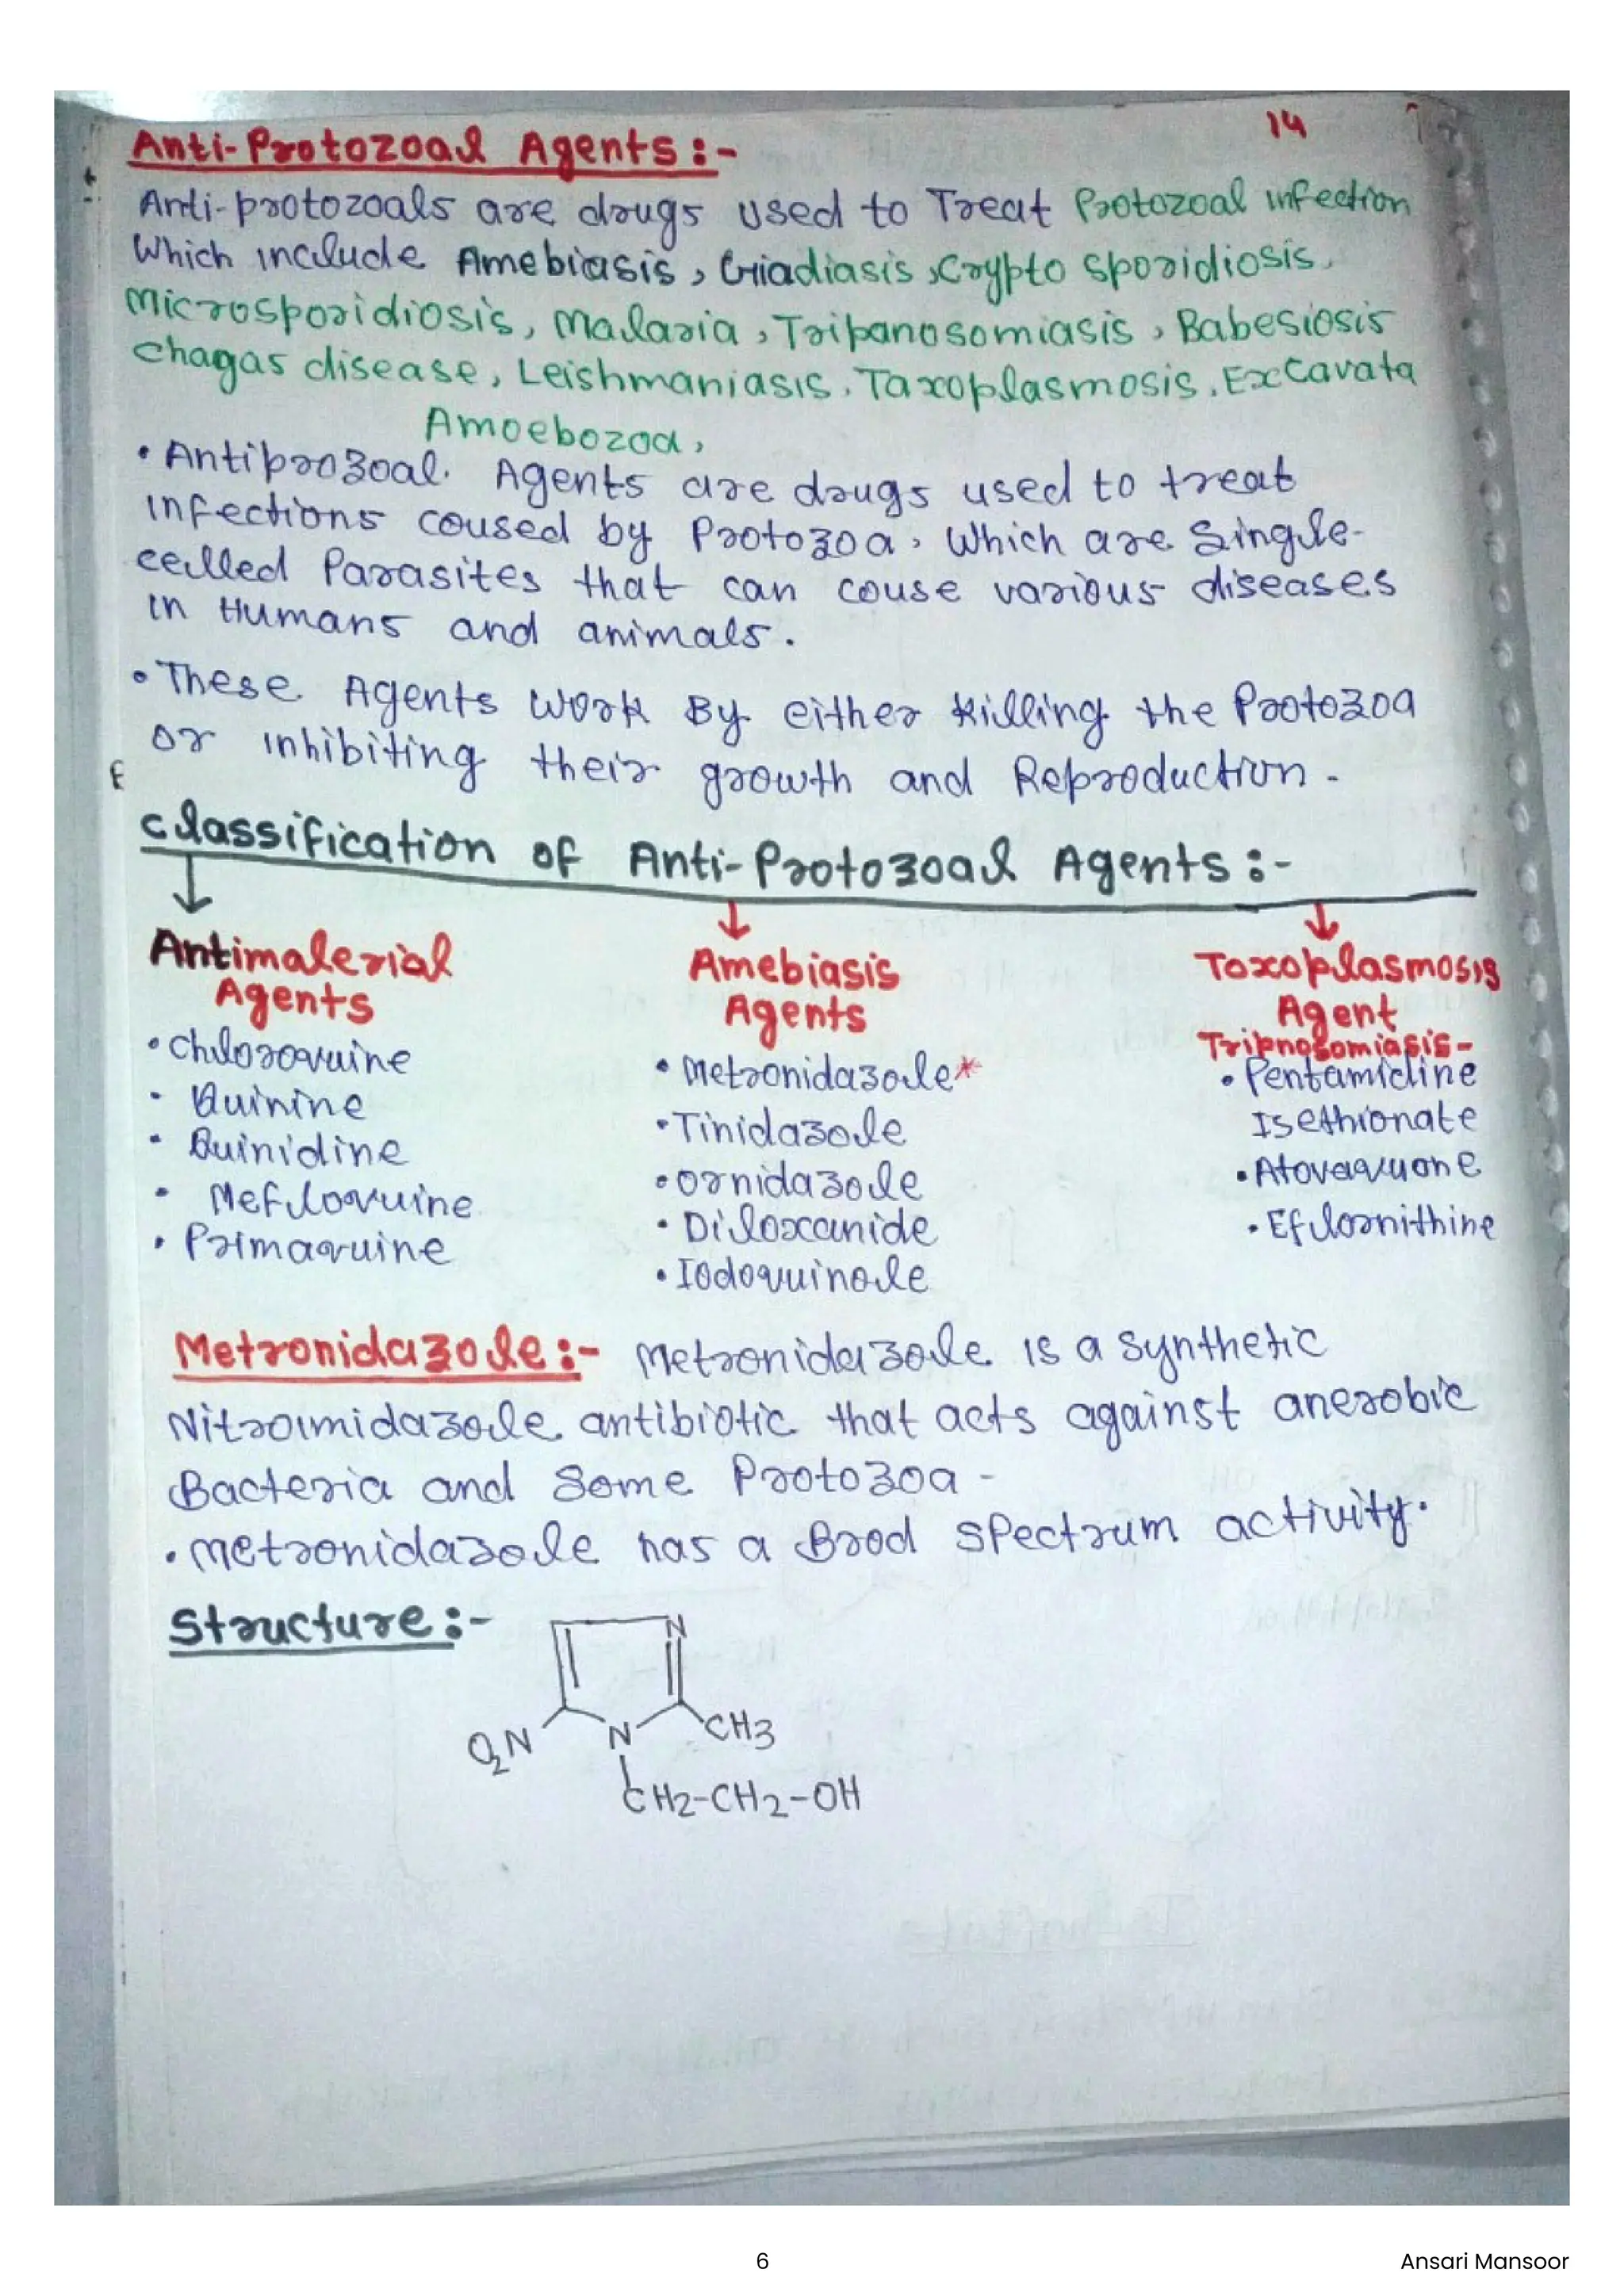 14
Anti-Protozoal Agents :-
Anti-protozoals are drugs used to Treat Protozoal infection
Which include Amebiasis, Griadiasis, Crypto sporidiosis,
Microsporidiosis, Malaria, Tripanosomiasis, Babesiosis
Chagas disease, Leishmaniasis, Taxoplasmosis, Excavata
Amoebozoa,
• Antiprozoal. Agents are drugs used to treat
infections coused by Protozoa, Which are Single-
celled Parasites that can couse various diseases
in Humans and animals.
• These Agents Work By either Killing the Protozoa
or inhibiting their growth and Reproduction -
Classification of Anti-Protozoal Agents :-
Antimalerial Agents
• Chloroquine
• Quinine
• Quinidine
• Mefloquine
• Primaquine
Amebiasis Agents
• Metronidazole*
• Tinidazole
• Ornidazole
• Diloxanide
• Iodoquinole
Toxoplasmosis
Agent
Tripnosomiasis-
• Pentamidine
Isethionate
• Atovaquone
• Eflornithine
Metronidazole :- Metronidazole is a Synthetic
Nitroimidazole antibiotic that acts against anerobic
Bacteria and Some Protozoa -
• Metronidazole has a Brod Spectrum activity.
Structure :-
N
O2N N CH3
CH2-CH2-OH
6
Ansari Mansoor